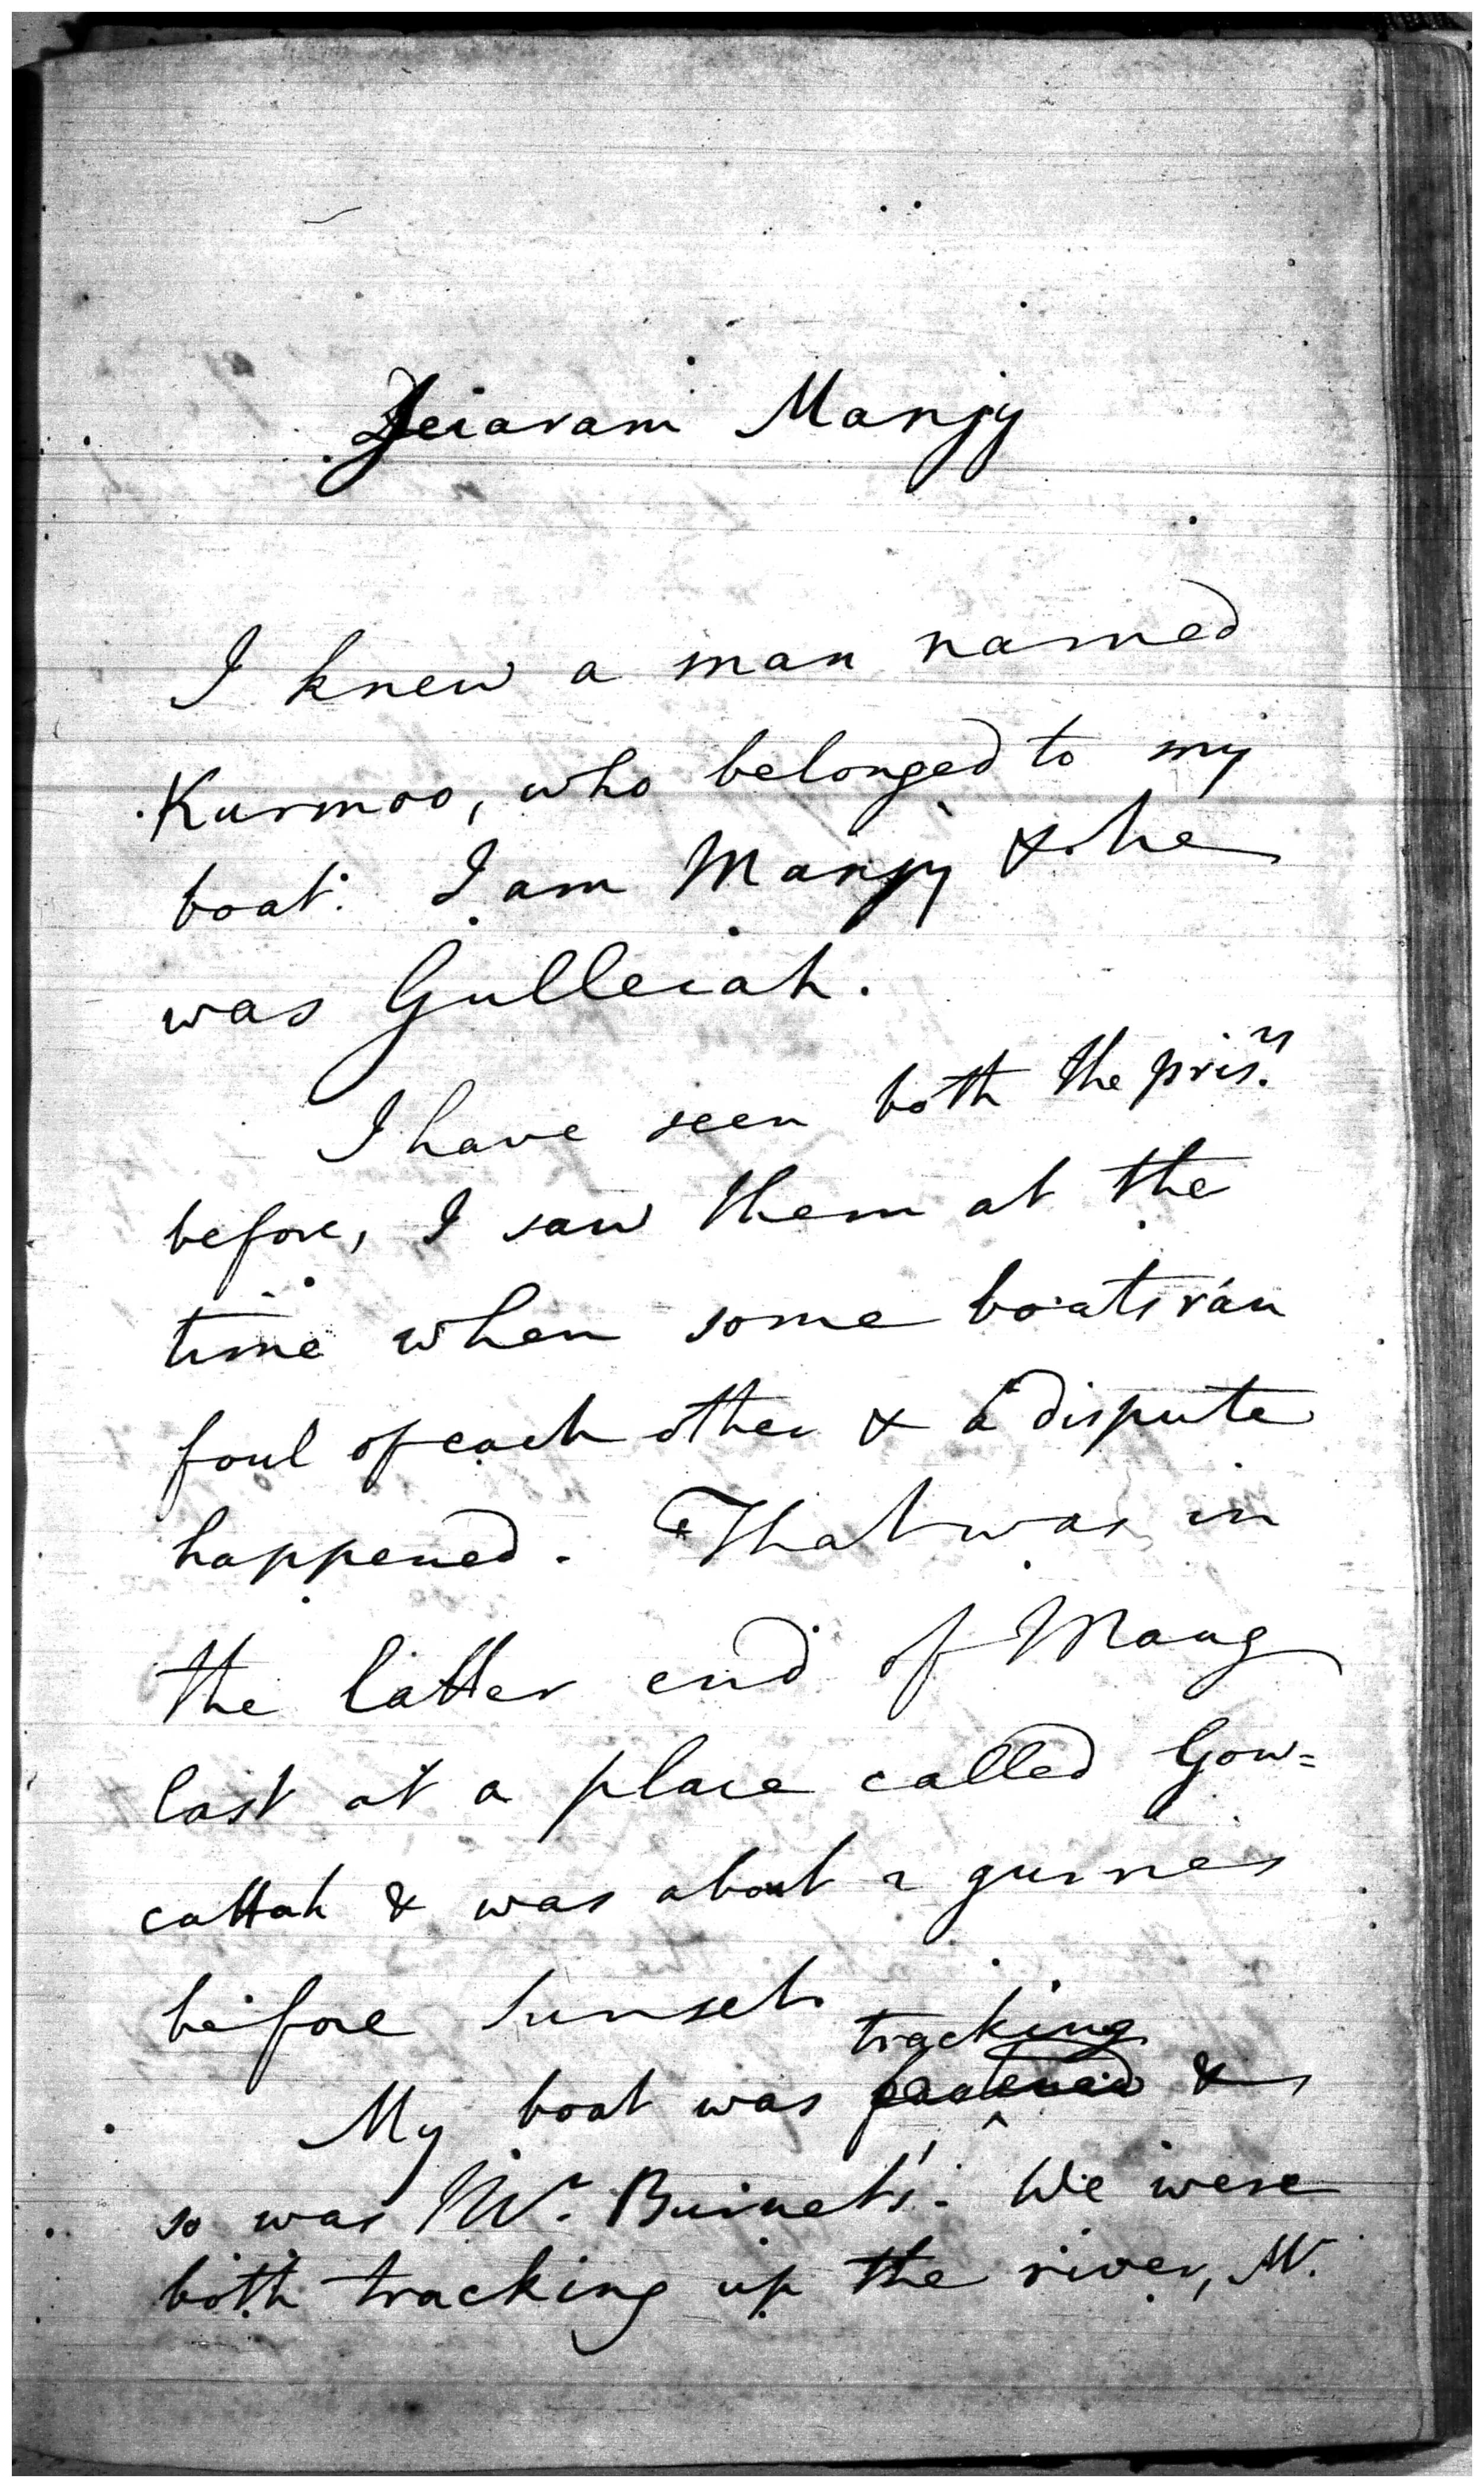 Jeiaram Manjy
I knew a man named
Kurmoo, who belonged to my
boat. I am Manjy & he
was Gulleiah.
I have seen both the pris.rs
before, I saw them at the
time when some boats ran
foul of each other & a dispute
happened. That was in
the latter end of Maug
last at a place called Gow=
cattah & was about 2 gurries
before Sunset.
tracking
My boat was fastened &
so was Mr. Burnet's. We were
both tracking up the river, Mr.